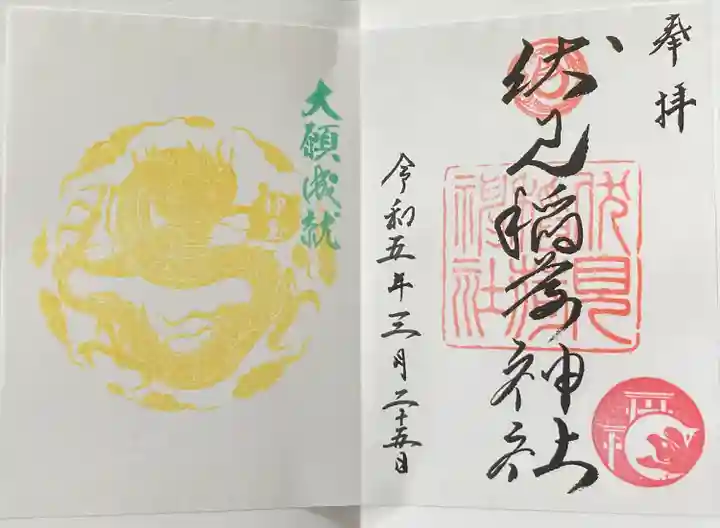 奉拝
伏見稲荷神社
伏見
稲荷
神社
令和五年三月二十五日
大願成就